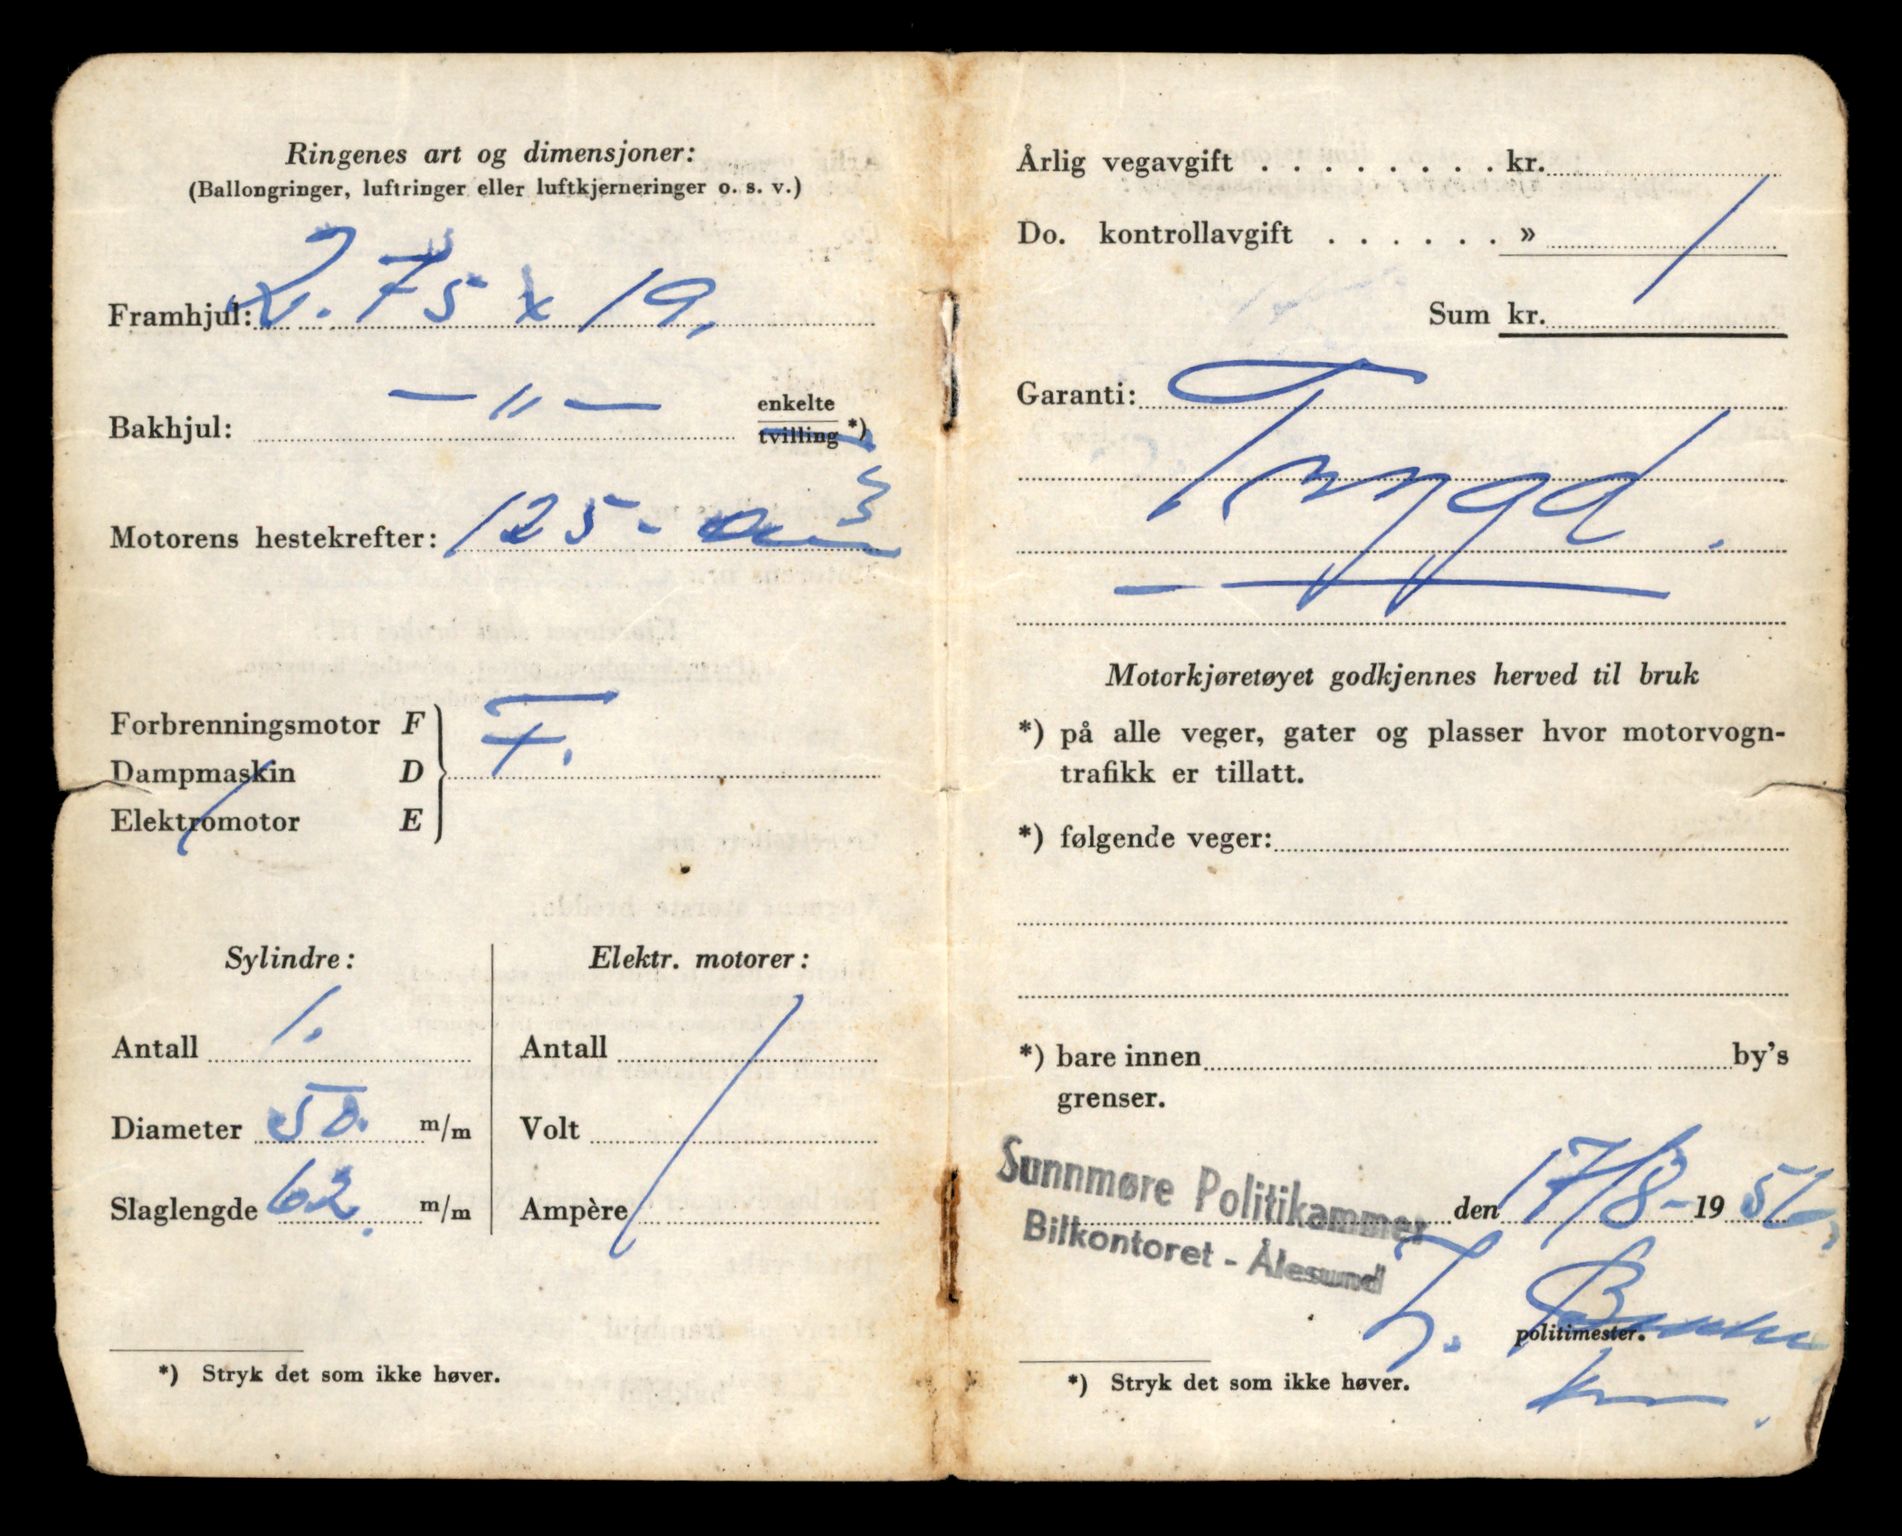 Ringenes art og dimensjoner:
(Ballongringer, luftringer eller luftkjerneringer o. s. v.)
Framhjul: 2.75 x 19.
Bakhjul: — " — enkelte
tvilling *)
Motorens hestekrefter: 125 - cm3
Forbrenningsmotor F
Dampmaskin D F.
Elektromotor E
Sylindre:
Antall 1.
Diameter 50. m/m
Slaglengde 62. m/m
Elektr. motorer:
Antall
Volt
Ampère
*) Stryk det som ikke høver.
Årlig vegavgift . . . . . . . . kr.
Do. kontrollavgift . . . . . . »
Sum kr.
Garanti: Trygd.
Motorkjøretøyet godkjennes herved til bruk
*) på alle veger, gater og plasser hvor motorvogn-
trafikk er tillatt.
*) følgende veger:
*) bare innen by's
grenser.
Sunnmøre Politikammer
Bilkontoret - Ålesund
den 17/8- 19 56.
politimester.
*) Stryk det som ikke høver.